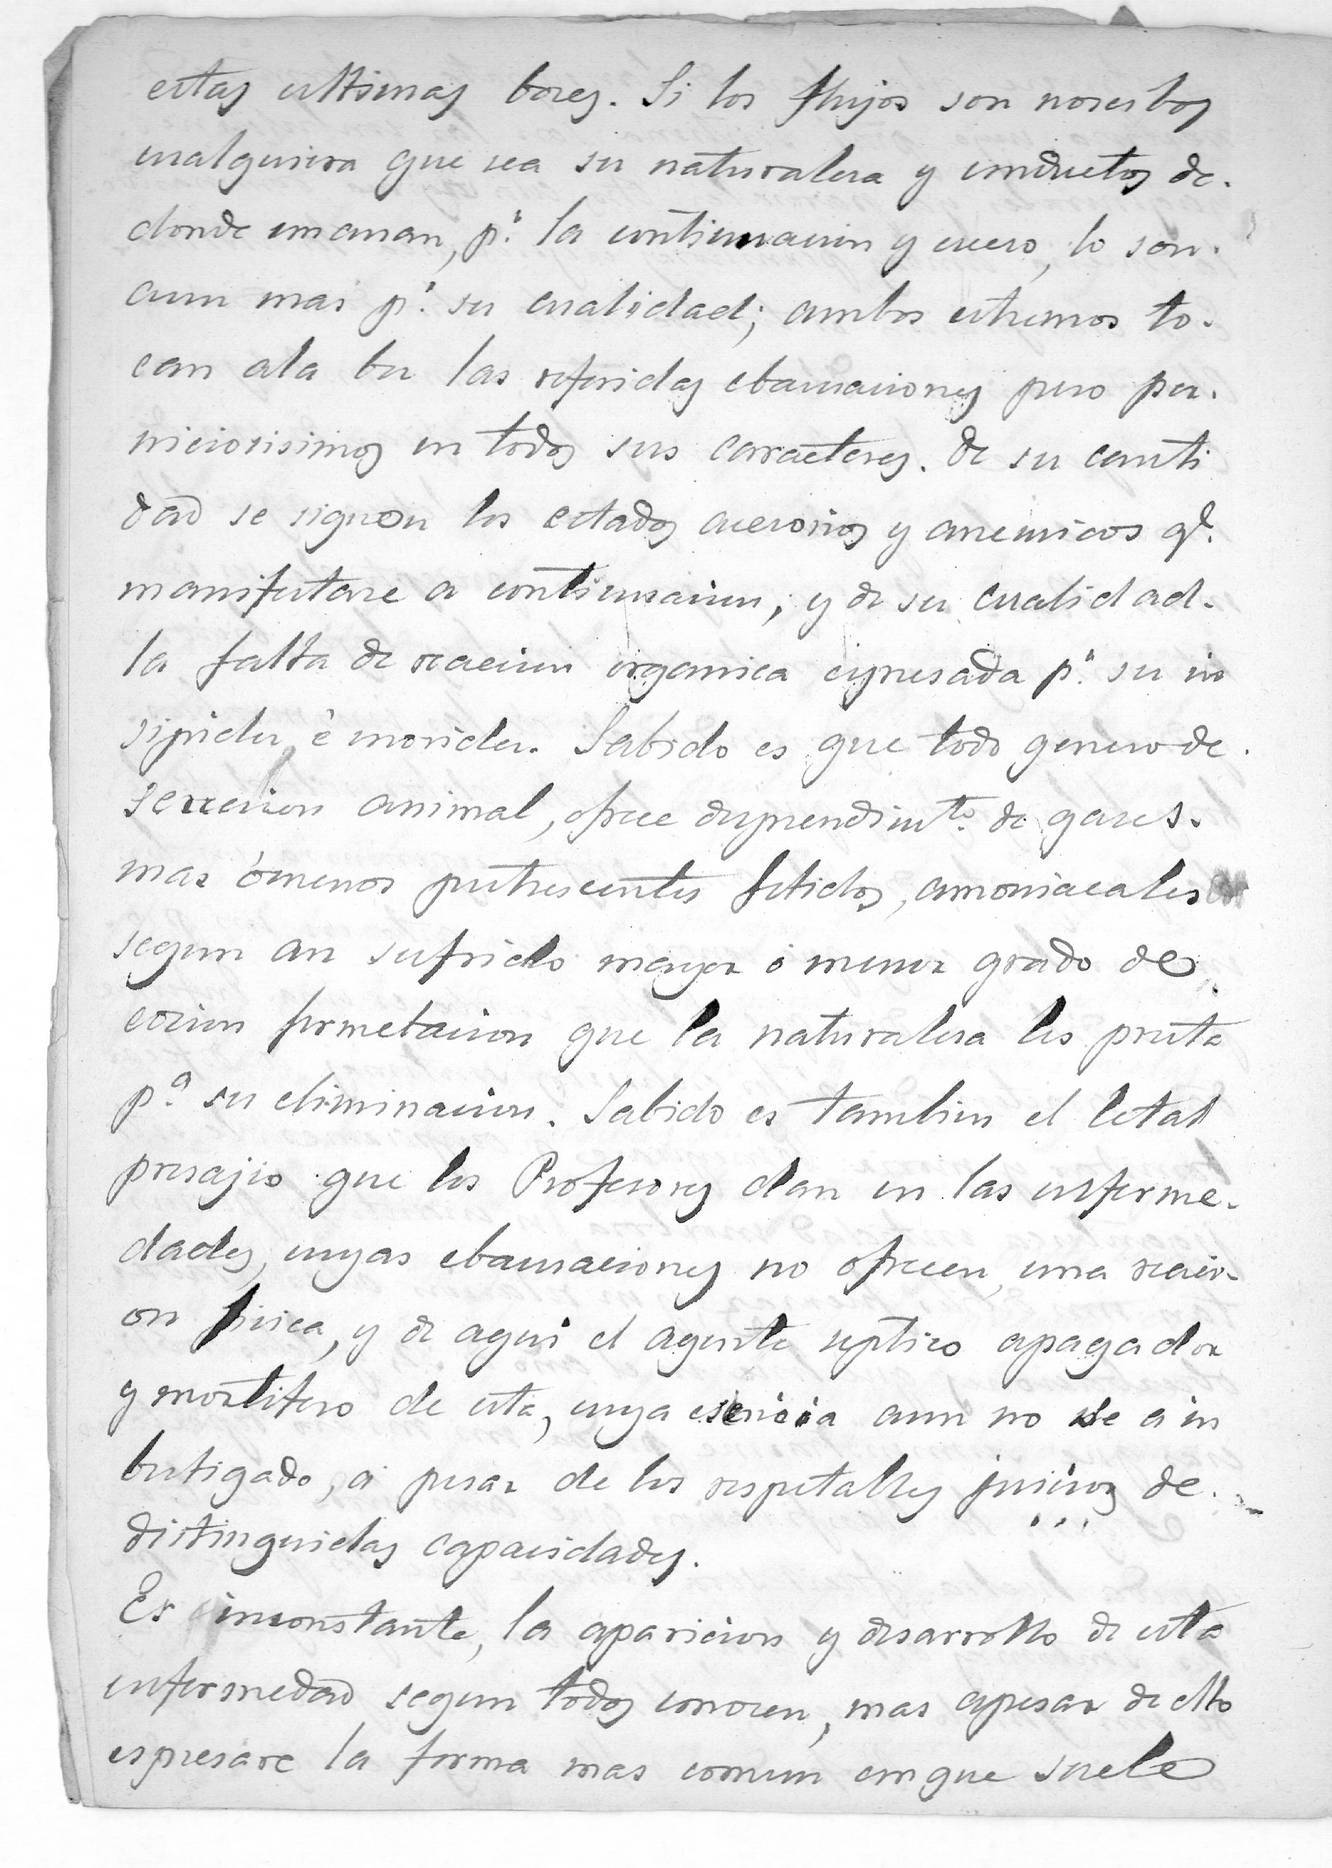 estas ultimas bozes. Si los flujos son nosibos
cualquiera que sea su naturaleza y conductos de.
donde emanan, pʳ. la continuacion y eceso, lo son.
aun mas pʳ. su cualidad; ambos estremos to.
can ala bez las referidas ebacuaciones pero per.
niciosisimos en todos sus caracteres. de su canti
dad se siguen los estados y anemicos qᵉ.
manifestare a continuacion; y de su cualidad.
la falta de reaccion organica espresada pʳ. su in
sipidez, è Sabido es que todo genero de.
secrecion animal, ofrece desprendimᵗᵒ. de gases.
mas ómenos putrescentes fetidos, amoniacales
segun an sufrido mayor ó menor grado de
cocion fermetacion que la naturaleza les presta
pᵃ. su eliminacion. Sabido es tambien el letal
presajio que los Profesores dan en las enferme.
dades, cuyas ebacuaciones no ofrecen, una reacci-
on fisica, y de aqui el agente septico apagador
y mortifero de esta, cuya esencia aun no se a in
bestigado, a pesar de los respetables juicios de.
distinguidas capacidades.
Es inconstante, la aparicion y desarrollo de esta
enfermedad segun todos conocen, mas apesar de ello
espresare la forma mas comun conque suele